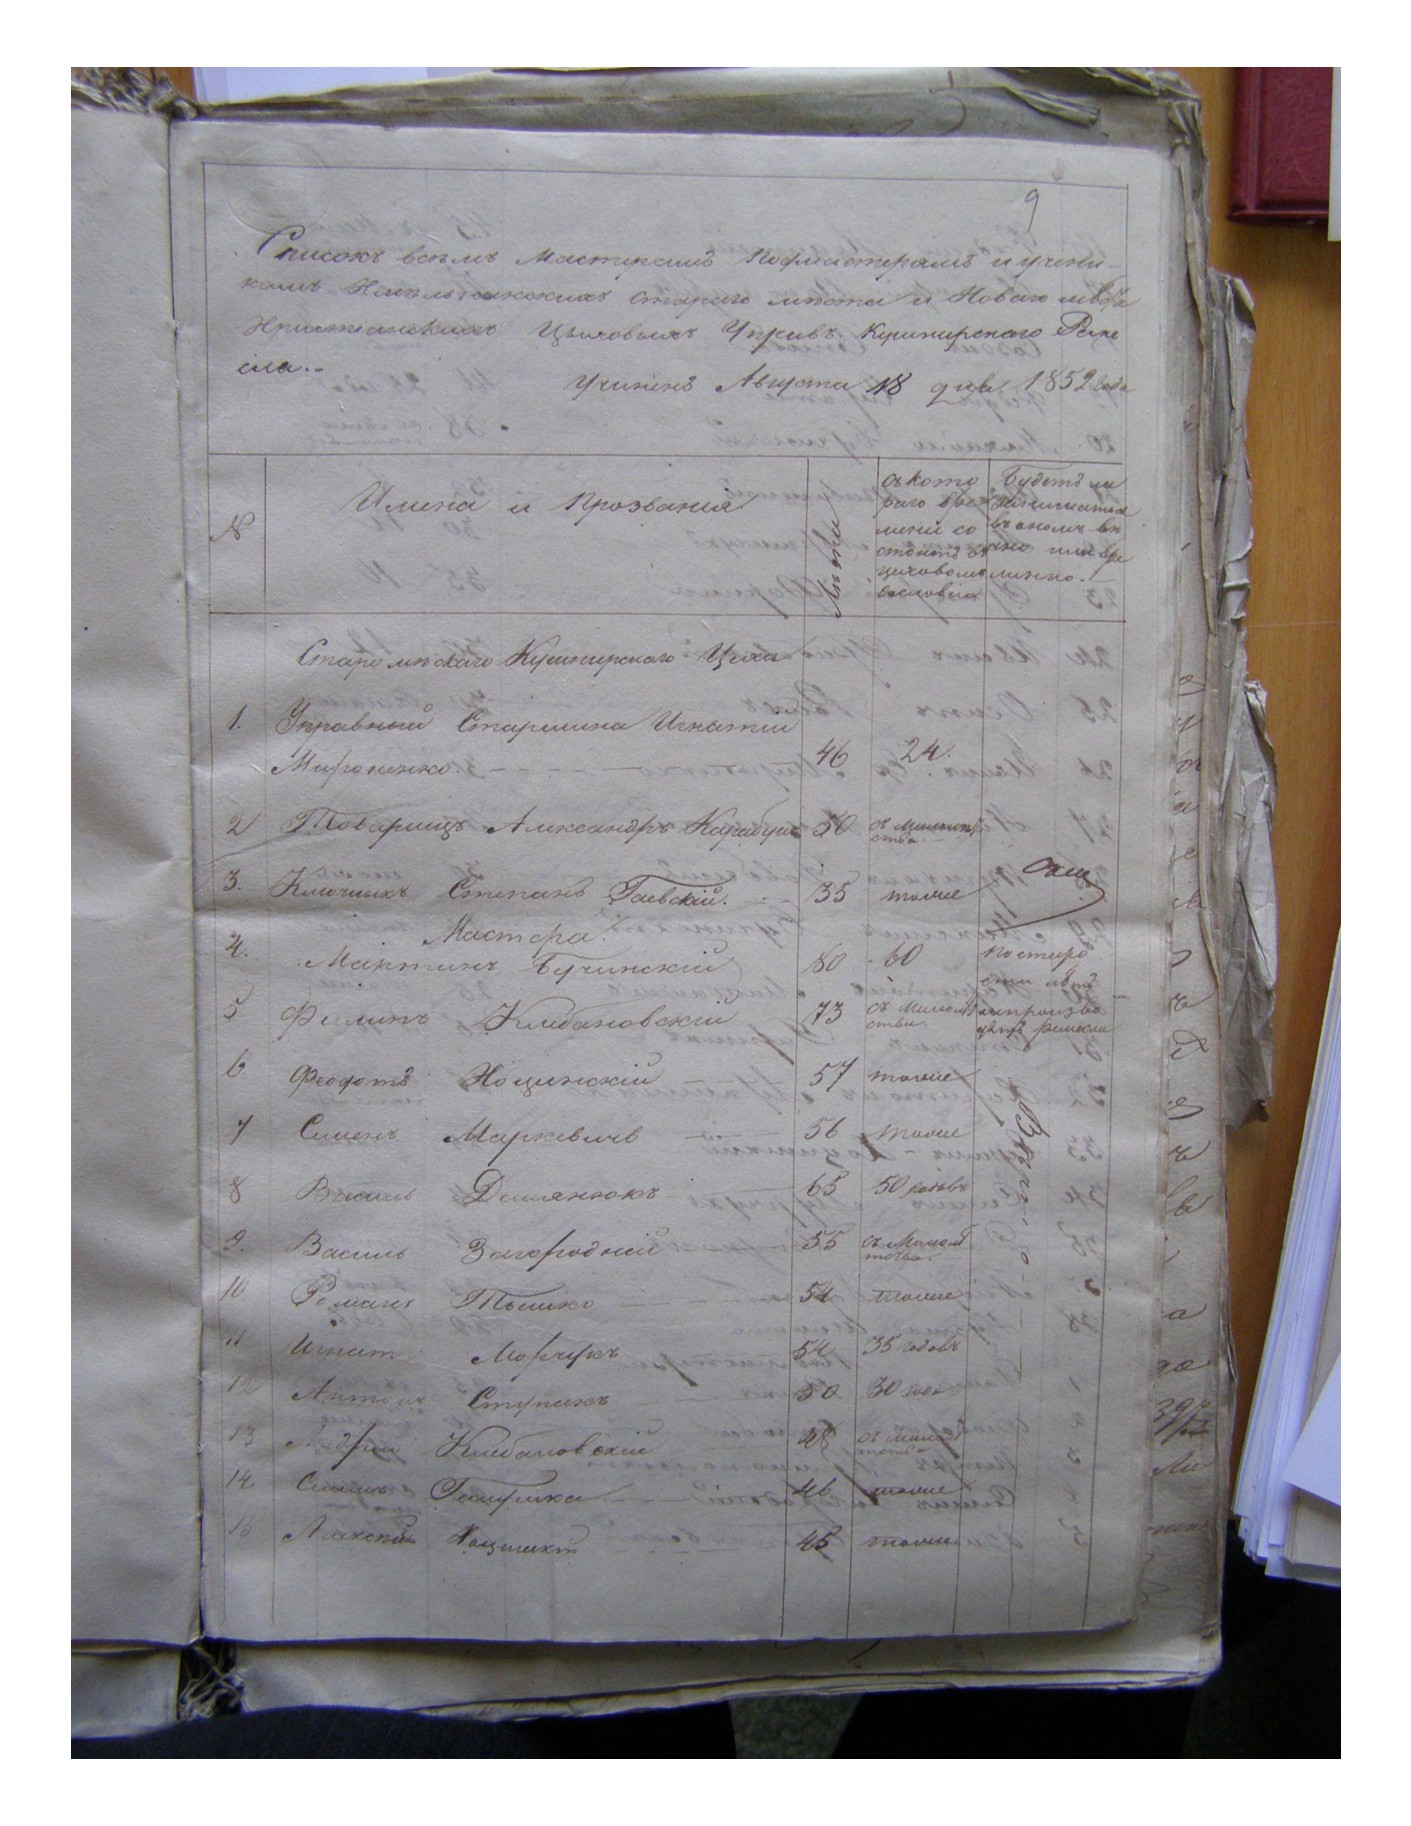 9
Списокъ всемъ Мастерамъ Подмастерямъ и учени-
камъ Хмельницкихъ Стараго места и Новаго места
Христианскихъ Цеховыхъ Управъ Кушнирскаго Реме
сла.-
Учиненъ Августа 18 дня 1852 года
№
Имена и Прозвания
Лета
съ кото
раго вре
мени со
стоитъ въ
цеховомъ
сословии
Будетъ ли
заниматся
въ ономъ ве
чно или вре
менно.
Старомескаго Кушнирскаго Цеха
1. Управный Старшина Игнатий
Мироненко. 46 24.
2 Товарищъ Александръ Карабушъ 50 съ малолет
ства.
3. Ключникъ Степанъ Гаевский. 35 тоже
Мастера.
4. Мартинъ Бучинский 80 60 по старо
сти летъ
5 Филипъ Клебановский 73 съ малолет
ства. непроизво
дитъ ремесла
6. Феодотъ Ноцинский 57 тоже
7 Семенъ Маркевичъ 56 тоже
Вечно
8 Василь Демянюкъ 65 50 годовъ
9. Василь Загородний 55 съ малолет
ства.
10 Романъ Тышко 54 тоже
11 Игнатъ Марчукъ 54 35 годовъ
12 Антонъ Ступакъ 50 30 года
13 Андрий Клебановский 48 съ малолет
ства
14 Семенъ Гамулка 46 тоже
15 Алексей 45 тоже